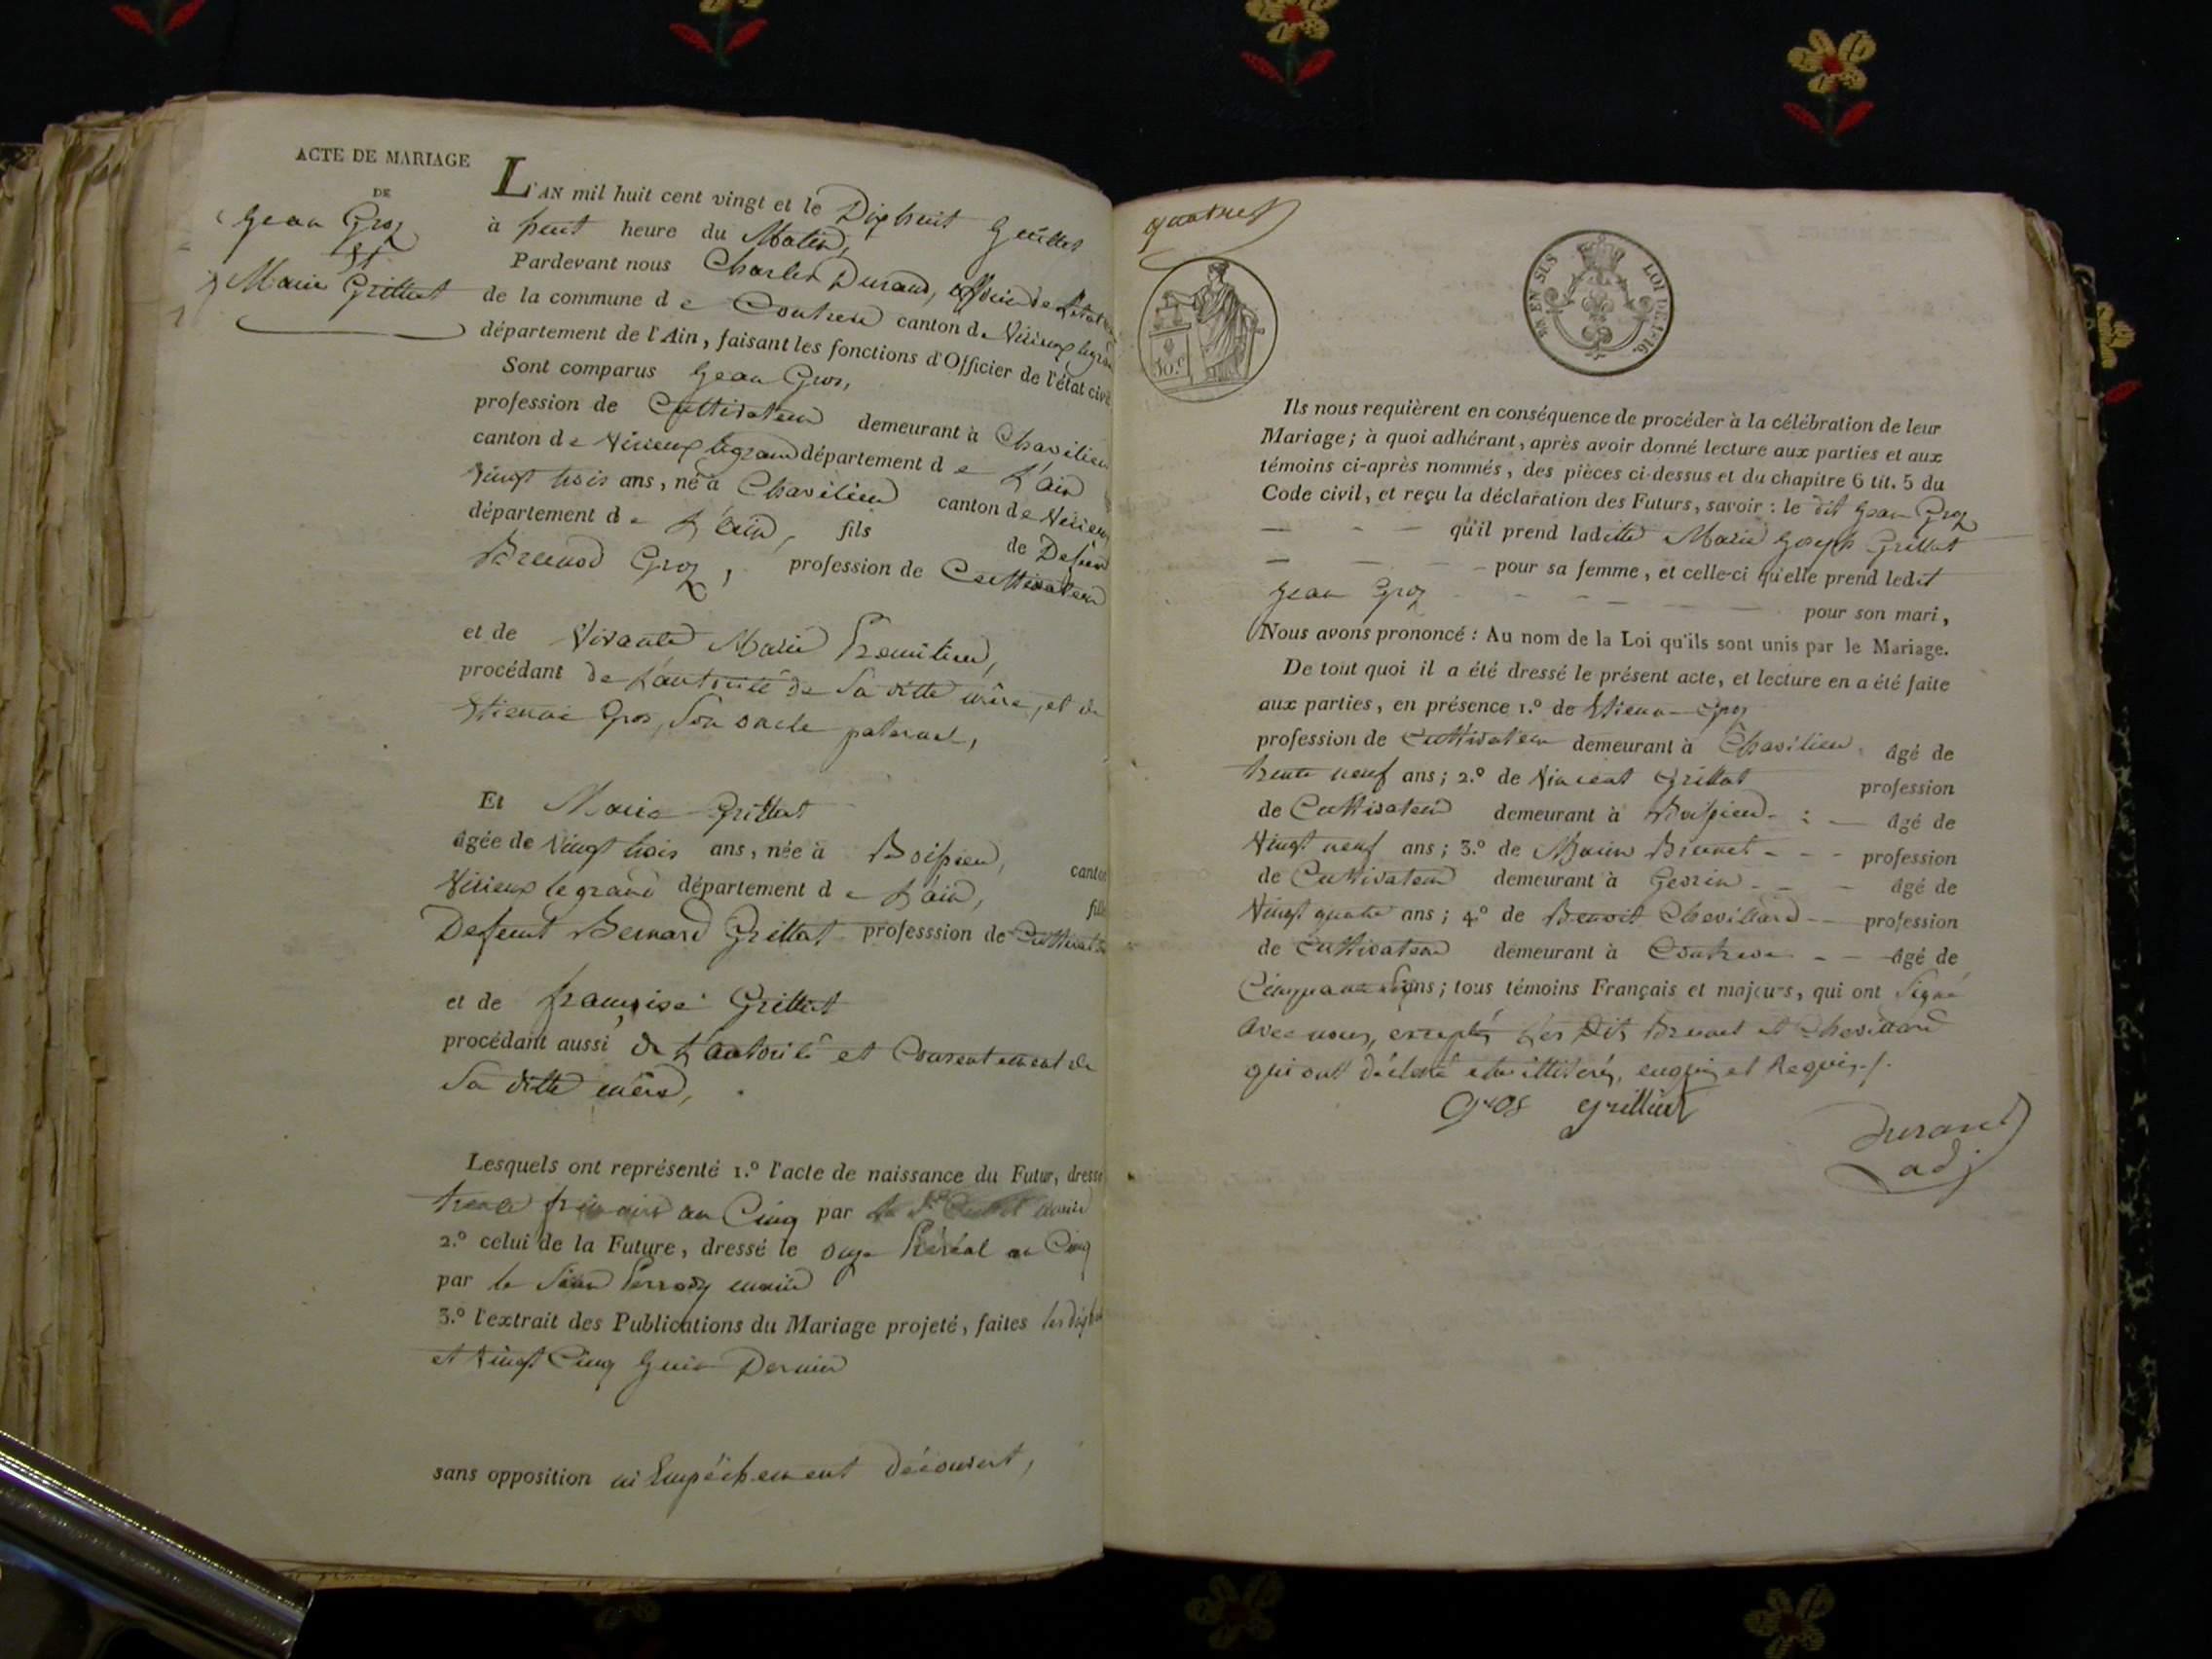 ACTE DE MARIAGE
DE
Jean Groz
Et
Marie Grillet
L'AN mil huit cent vingt et le Dixhuit Juillet
à huit heure du Matin,
Pardevant nous Charles Durand, officier de l'état
de la commune de Contrevoz canton de Virieux legrand
département de l'Ain, faisant les fonctions d'Officier de l'état civil
Sont comparus Jean Gros,
profession de Cultivateur demeurant à Chavilieu
canton de Virieux legrand département de L'ain
vingt trois ans, né à Chavilieu canton de Virieux
département de L'ain, fils de Defunt
Groz, profession de Cultivateur
et de Vivante Marie
procédant de L'autorité de Sa ditte mère, et de
Etienne Gros, Son oncle paternel,
Et Marie Grillet
âgée de Vingt trois ans, née à Boissieu, canton
Virieux le grand département de L'ain, fille
Defunt Bernard Grillet professsion de Cultivateur
et de françoise Grillet
procédant aussi de L'autorité et Consentement de
Sa ditte mère,
Lesquels ont représenté 1.º l'acte de naissance du Futur, dressé
trente frimaire an Cinq par maire
2.º celui de la Future, dressé le onze Prérial an Cinq
par le Sieur maire
3.º l'extrait des Publications du Mariage projeté, faites les dixhuit
et Vingt Cinq Juin Dernier
sans opposition ni Empêchement découvert,
quatre
EN SUS LOI DE 1816.
Ils nous requièrent en conséquence de procéder à la célébration de leur
Mariage; à quoi adhérant, après avoir donné lecture aux parties et aux
témoins ci-après nommés, des pièces ci-dessus et du chapitre 6 tit. 5 du
Code civil, et reçu la déclaration des Futurs, savoir: le dit Jean Groz
qu'il prend laditte Marie Joseph Grillet
pour sa femme, et celle-ci qu'elle prend ledit
Jean Groz pour son mari,
Nous avons prononcé: Au nom de la Loi qu'ils sont unis par le Mariage.
De tout quoi il a été dressé le présent acte, et lecture en a été faite
aux parties, en présence 1.º de Etienne Groz
profession de Cultivateur demeurant à Chavilieu âgé de
trente neuf ans; 2.º de Vincent Grillet profession
de Cultivateur demeurant à Boissieu âgé de
Vingt neuf ans; 3.º de Marin Brunet profession
de Cultivateur demeurant à Gevrin âgé de
Vingt quatre ans; 4.º de Benoit Chevillard profession
de Cultivateur demeurant à Contrevoz âgé de
Cinquante Six ans; tous témoins Français et majeurs, qui ont Signé
avec nous, excepté Les Dits Brunet et Chevillard
qui ont déclaré être illitérés, enquis et Requis./.
Gros Grillet
Durand
adj